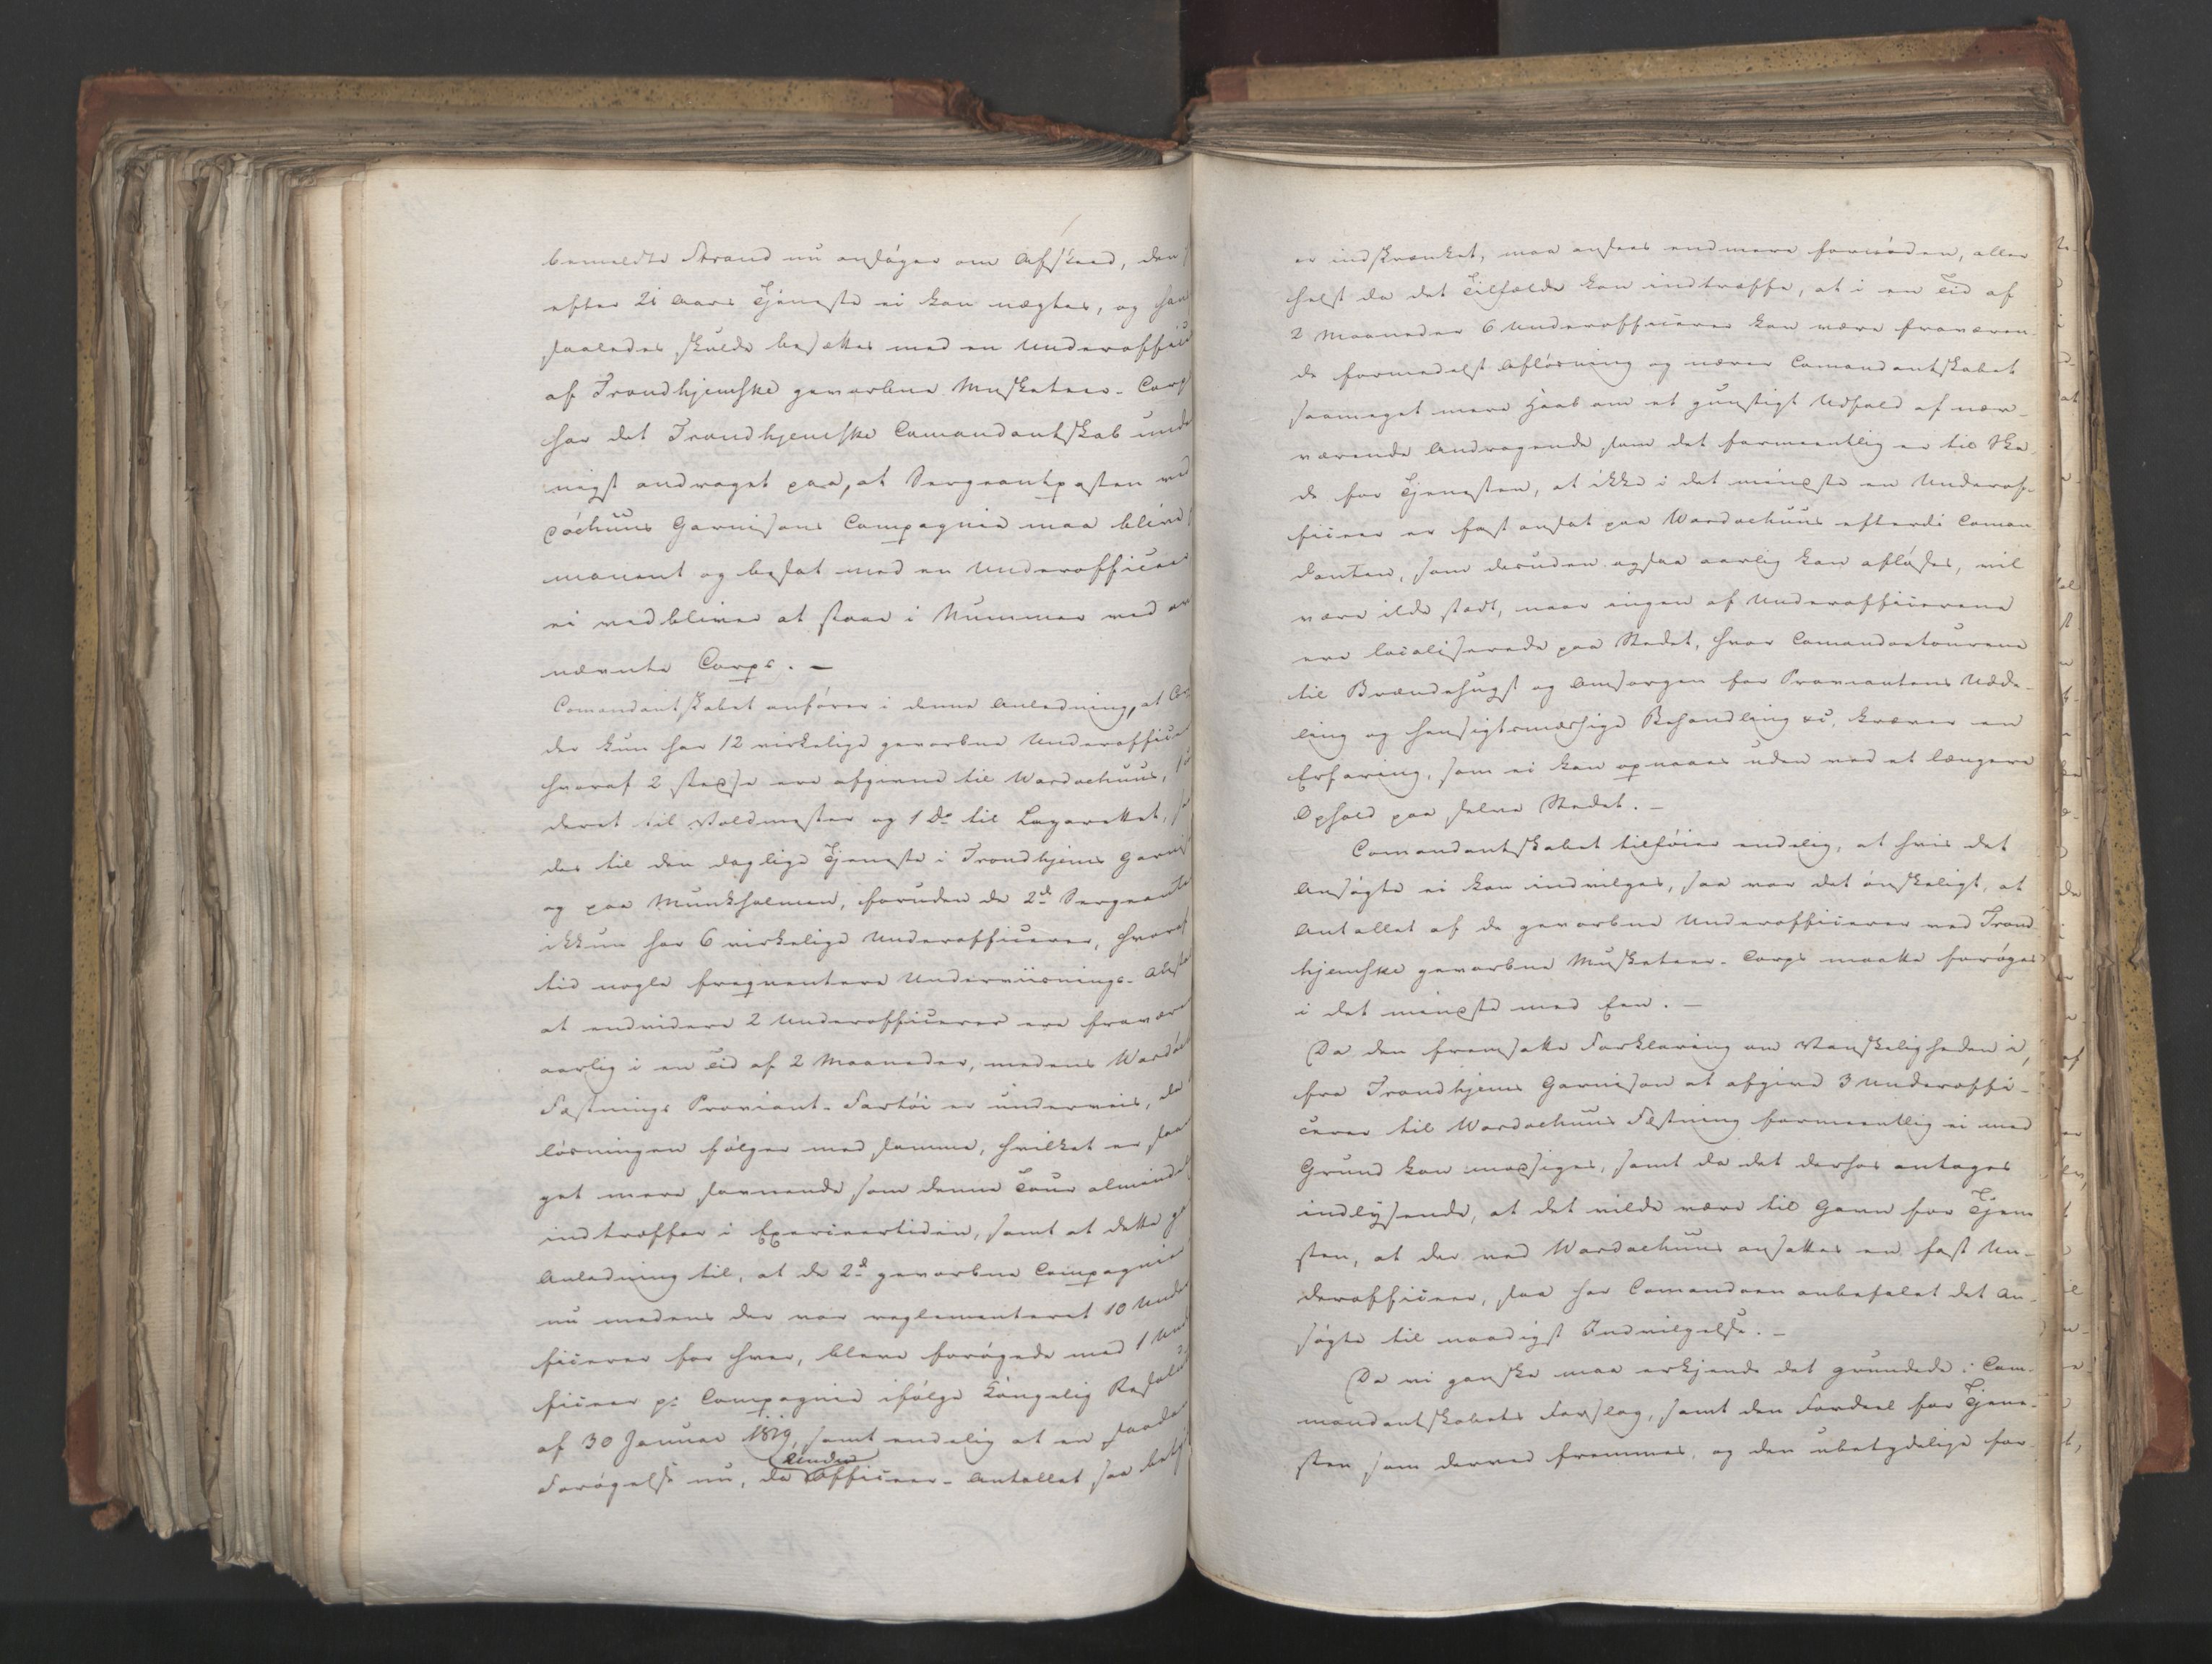 bemeldte Strand nu ansøger om Afskeed, den
efter 21 Aars Tjeneste ei kan nægtes, og han
saaledes skulde besættes med en Underoffici
af Trondhjemske gevorbne Musketeer-Corp
har det Trondhjemske Comandantskab unde
nigst andraget paa, at Sergeantposten ved
döehuus Garnisons Compagnie maa blive
manent og besat med en Underofficeer
ei vedbliver at staae i Nummer ved o
nævnte Corps. -
Comandantskabet anfører i denne Anledning, at Cor
der kun har 12 virkelige gevorbne Underofficer
hvoraf 2 stedse ere afgivne til Wardoehuus,
deret til Voldmester og 1 Do til Lazarettet,
des til den daglige Tjeneste i Trondhjems Garnis
og paa Munkholmen, foruden de 2de Sergeante
ikkun har 6 virkelige Underofficerer, hvoraf
tid nogle freqventere Underviisnings-Ansta
at endvidere 2 Underofficerer ere fravære
aarlig i en Tid af 2 Maaneder, medens Wardöe
Fæstnings Proviant-Fartöi er underveis, da
løsningen følger med samme, hvilket er saa
get mere savnende som denne Tour almindel
indtræffer i Exerceertiden, samt at dette ga
Anledning til, at de 2de gevorbne Compagnier
nu medens der var reglementeret 10 Under
ficerer for hver, bleve forøgede med 1 Und
ficeer pr Compagnie ifølge Kongelig Resolut
af 30 Januar 1819, samt endelig at en saada
Under
Forøgelse nu, da Officeer-Antallet saa bety
er indskrænket, maa ansees endmere fornöden, aller
helst da det Tilfælde kan indtræffe, at i en Tid af
2 Maaneder 6 Underofficerer kan være fraværen-
de formedelst Afløsning og nærer Comandantskabet
saameget mere Haab om et gunstigt Udfald af nær-
værende Andragende som det formeentlig er til Ska
de for Tjenesten, at ikke i det mindste en Underof-
ficeer er fast ansat paa Wardoehuus efterdi Coman
danten, som desuden ogsaa aarlig kan afløses, vil
være ilde stædt, naar ingen af Underofficererne
ere localiserede paa Stedet, hvor Comandoetourene
til Brændehugst og Omsorgen for Proviantens Udde-
ling og hensigtsmæssige Behandling &c. kræver en
Erfaring, som ei kan opnaaes uden ved et længere
Ophold paa selve Stedet. -
Comandantskabet tilføier endelig, at hvis det
Ansøgte ei kan indvilges, saa var det ønskeligt, at
Antallet af de gevorbne Underofficerer ved Trond
hjemske gevorbne Musketeer-Corps maatte forøges
i det mindste med Een. -
Da den fremsatte Forklaring om Vanskeligheden i,
fra Trondhjems Garnison at afgive 3 Underoffi-
cerer til Wardoehuus Fæstning formeentlig ei med
Grund kan modsiges, samt da det derhos antages
indlysende, at det vilde være til Gavn for Tjene
sten, at der ved Wardoehuus ansattes en fast Un-
derofficeer, saa har Comandoen anbefalet det An-
søgte til naadigst Indvilgelse. -
Da vi ganske maa erkjende det grundede i Com-
mandantskabets Forslag, samt den Fordeel for Tjene-
sten som derved fremmes, og den ubetydelige For-